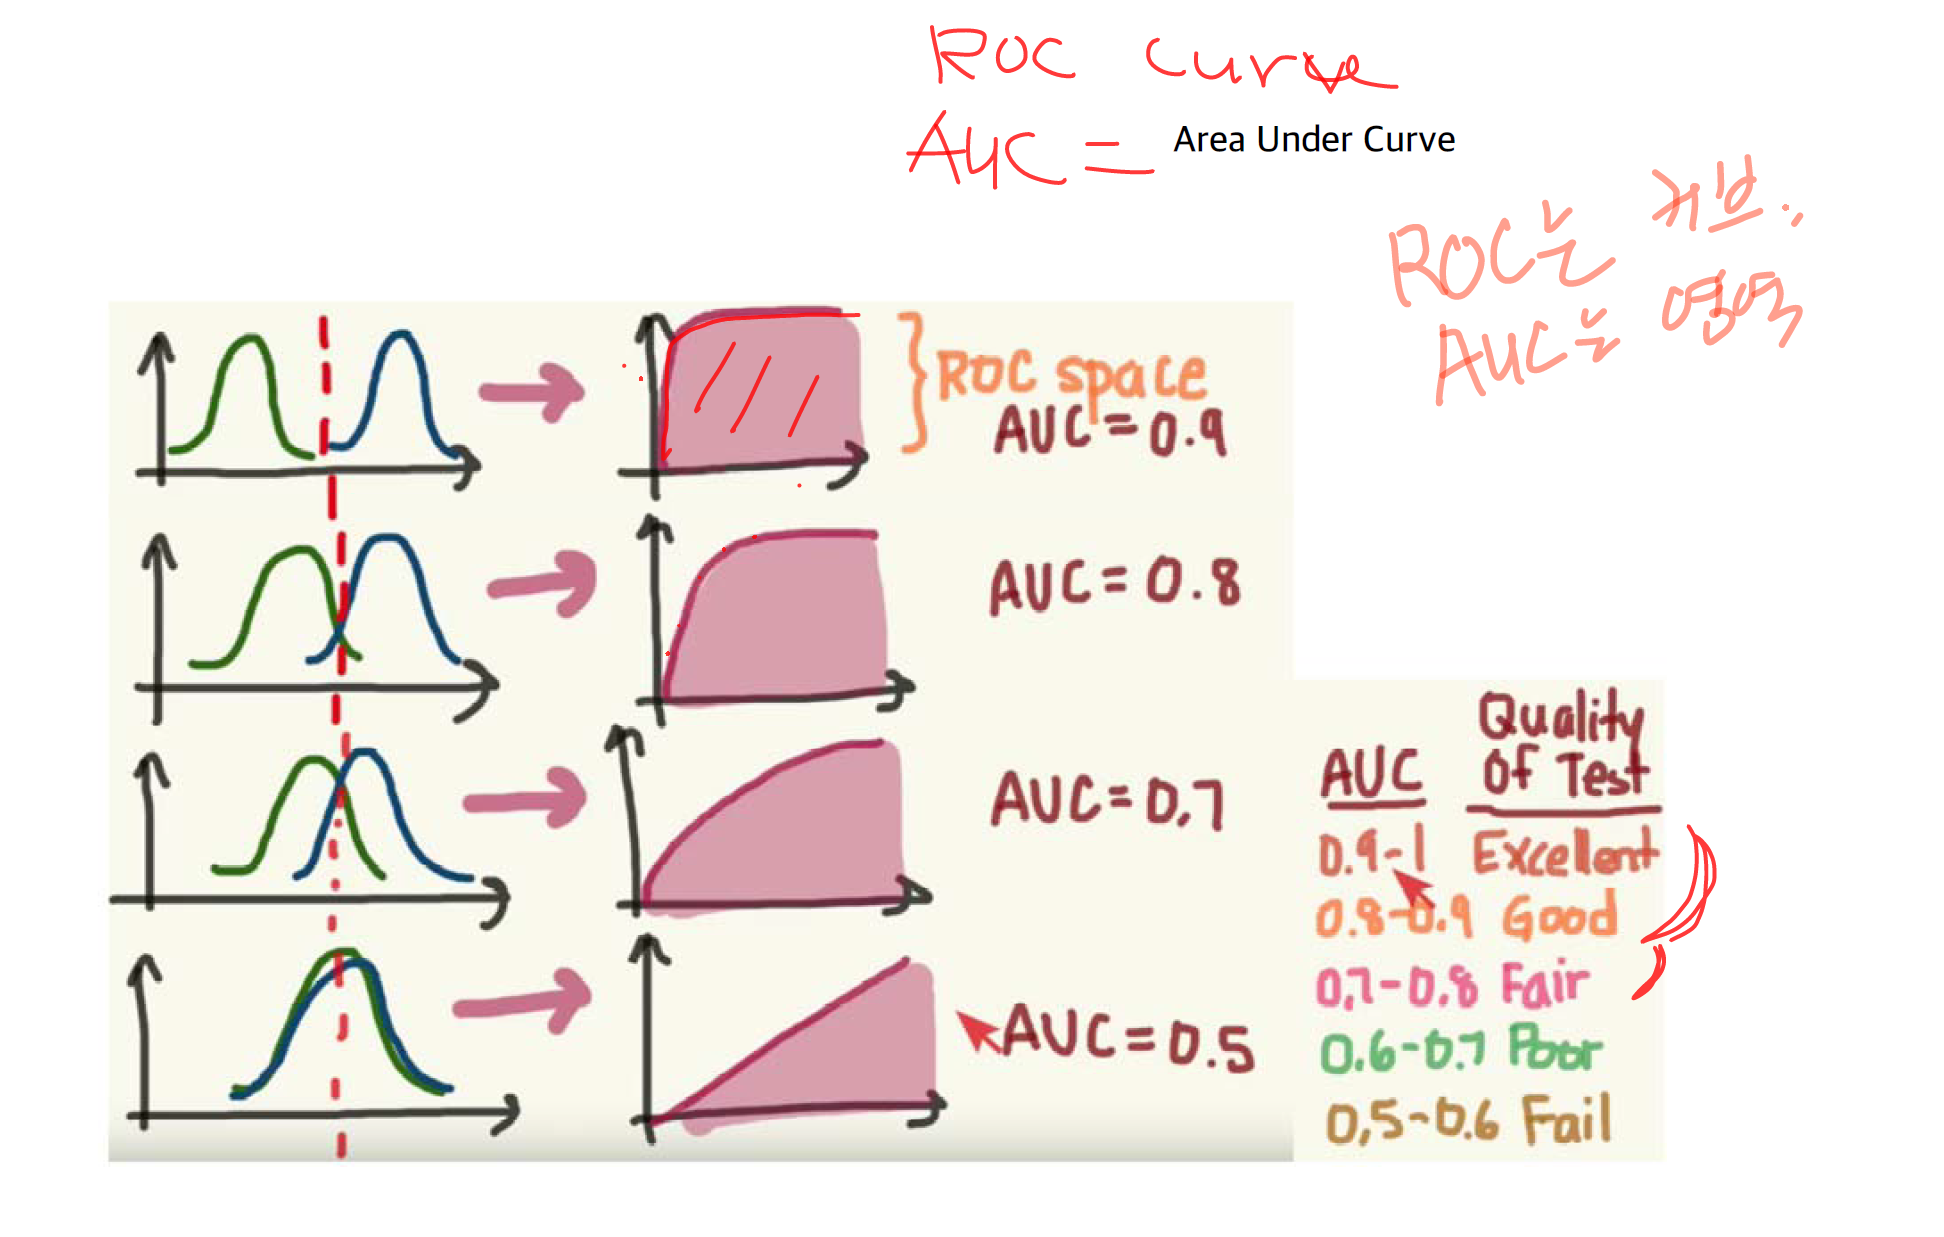 ROC curve
AUC = Area Under Curve
ROC는 커브.,
AUC는 영역
ROC space
AUC = 0.9
AUC = 0.8
AUC = 0.7
AUC = 0.5
AUC Quality Of Test
0.9-1 Excellent
0.8-0.9 Good
0.7-0.8 Fair
0.6-0.7 Poor
0.5-0.6 Fail